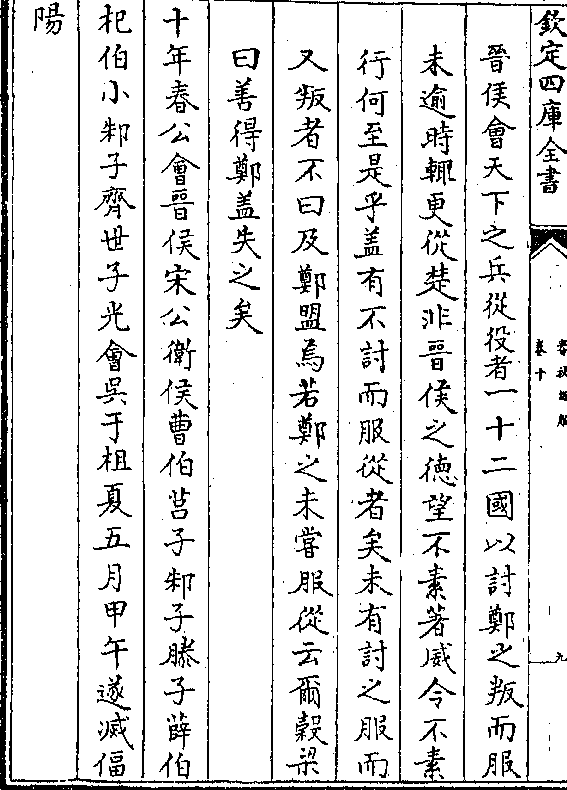 欽定四庫全書
卷十
九
晉侯會天下之兵從役者一十二國以討鄭之叛而服
未逾時輒更從楚非晉侯之德望不素著威令不素
行何至是乎盖有不討而服從者矣未有討之服而
又叛者不曰及鄭盟焉若鄭之未嘗服從云爾穀梁
曰善得鄭盖失之矣
十年春公會晉侯宋公衛侯曹伯莒子邾子滕子薛伯
杞伯小邾子齊世子光會吳于柤夏五月甲午遂滅偪
陽